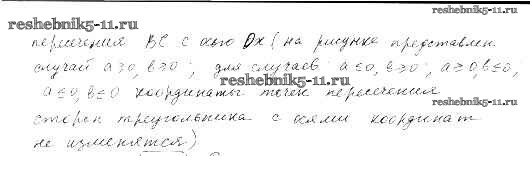 reshebnik5-11.ru
reshebnik5-11.ru
пересечения BC с осью Ox (на рисунке представлен
случай a≥0, b≥0; для случаев a≤0, b≥0; a≥0, b≤0;
reshebnik5-11.ru
a≤0, b≤0 координаты точек пересечения
reshebnik5-11.ru
сторон треугольника с осями координат
не изменятся)